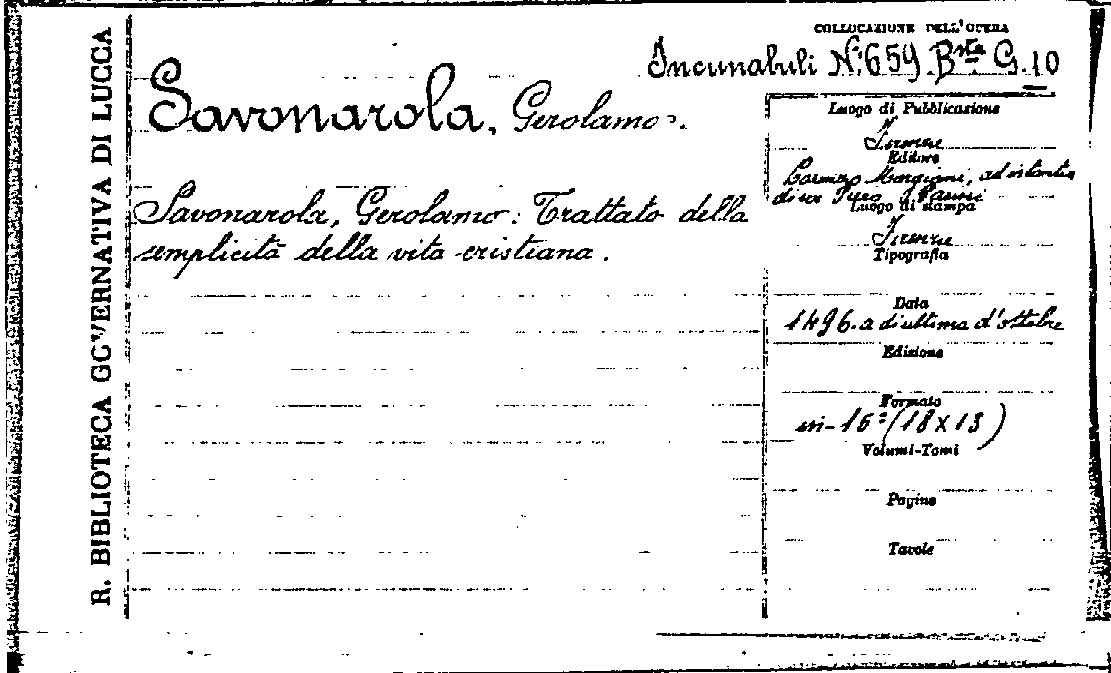 R. BIBLIOTECA GOVERNATIVA DI LUCCA
COLLOCAZIONE DELL'OPERA
Incunabuli N.º 659. Bsta G. 10
Savonarola, Gerolamo.
Savonarola, Gerolamo: Trattato della
semplicità della vita cristiana.
Luogo di Pubblicazione
Firenze
Editore
Lorenzo Morgiani, ad istantia
di ser Piero
Luogo di stampa
Firenze
Tipografia
Data
1496. a di ultimo d'ottobre
Edizione
Formato
in-16º (18 x 13)
Volumi-Tomi
Pagine
Tavole